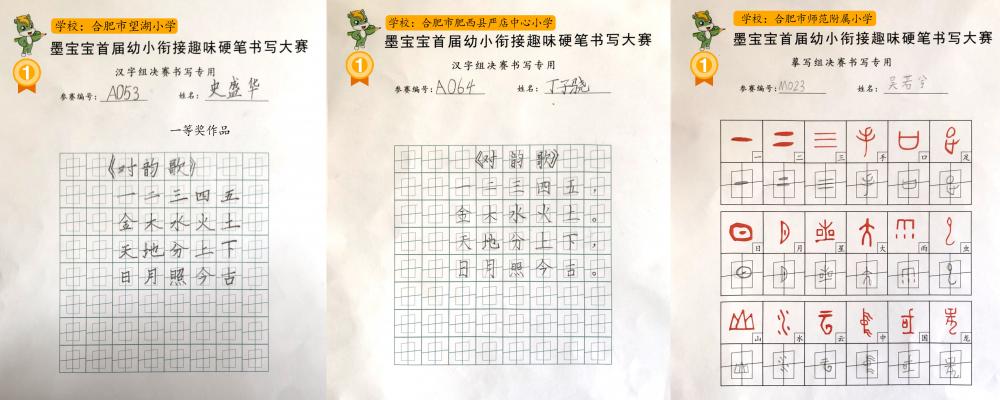 学校：合肥市望湖小学
墨宝宝首届幼小衔接趣味硬笔书写大赛
1
汉字组决赛书写专用
参赛编号：A053 姓名：史盛华
一等奖作品
《对韵歌》
一二三四五
金木水火土
天地分上下
日月照今古
学校：合肥市肥西县严店中心小学
墨宝宝首届幼小衔接趣味硬笔书写大赛
1
汉字组决赛书写专用
参赛编号：A064 姓名：丁子骁
《对韵歌》
一二三四五，
金木水火土。
天地分上下，
日月照今古。
学校：合肥市师范附属小学
墨宝宝首届幼小衔接趣味硬笔书写大赛
1
摹写组决赛书写专用
参赛编号：M023 姓名：吴若
一 二 三 手 口 足
日 月 星 大 雨 虫
山 水 云 中 国 龙